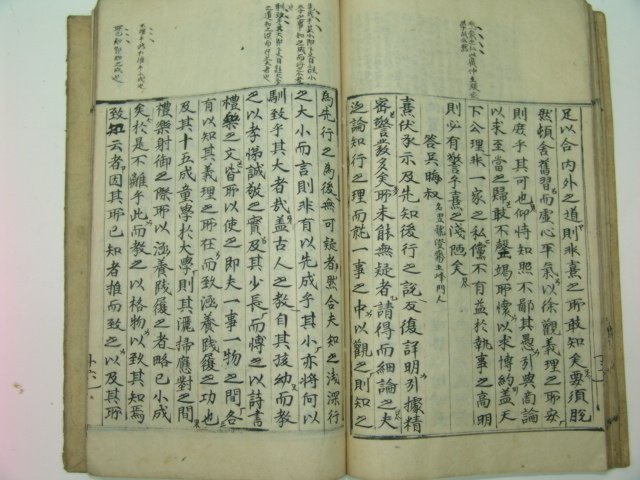 足以合內外之道則非熹之所敢知矣要須脫
然頓舍舊習而虛心平氣以徐觀義理之所安
則庶乎其可也仰恃知照不鄙其愚引與商論
以求至當之歸敢不罄竭所懷以求博約蓋天
下公理非一家之私儻不有益於執事之高明
則必有警乎熹之淺陋矣
答吳晦叔
熹伏承示及先知後行之說反復詳明引據精
密警發多矣所未能無疑者請得而細論之夫
泛論知行之理而就一事之中以觀之則知之
為先行之為後無可疑者然合夫知之淺深行
之大小而言則非有以先成乎其小亦將何以
馴致乎其大者哉蓋古人之教自其孩幼而教
之以孝悌誠敬之實及其少長而博之以詩書
禮樂之文皆所以使之即夫一事一物之間各
有以知其義理之所在而致涵養踐履之功也
及其十五成童學於大學則其灑掃應對之間
禮樂射御之際所以涵養踐履之者略已小成
矣於是不離乎此而教之以格物以致其知焉
致知云者因其所已知者推而致之以及其所